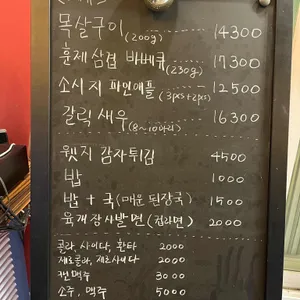 목살구이(200g) 14300
훈제 삼겹 바베큐(230g) 17300
소시지 파인애플(3pcs+2pcs) 12500
갈릭 새우(8~10마리) 16300
웻지 감자튀김 4500
밥 1000
밥 + 국(매운 된장국) 1500
육개장 사발면(컵라면) 2000
콜라, 사이다, 환타 2000
제로콜라, 제로사이다 2000
캔맥주 3000
소주, 맥주 5000